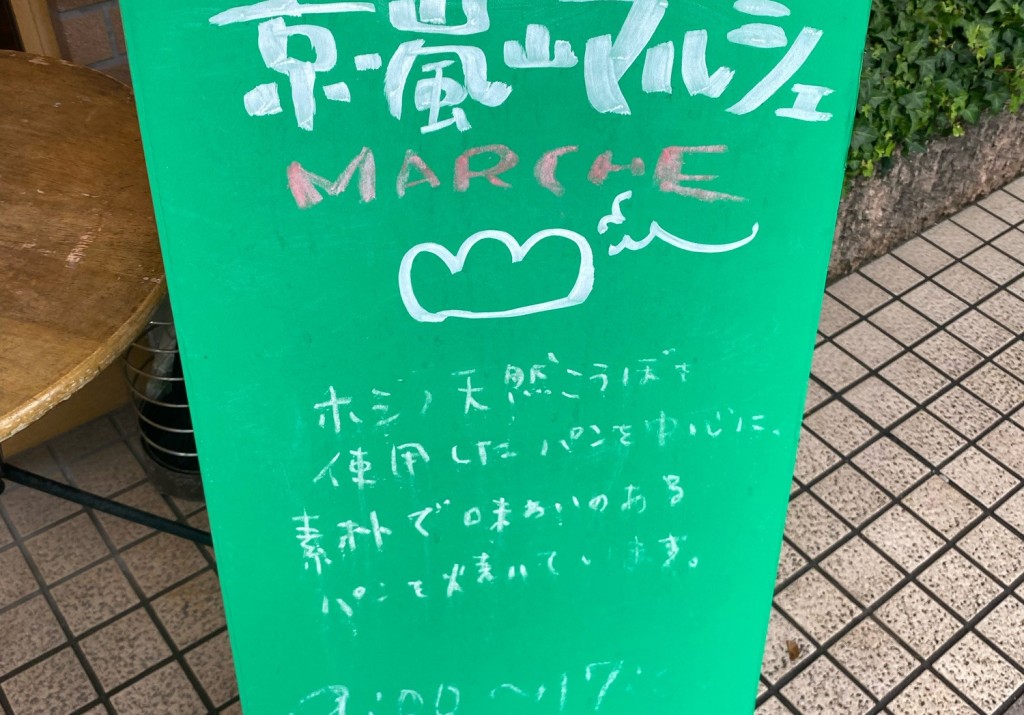 京・嵐山マルシェ
MARCHE
ホシノ天然こうぼを
使用したパンを中心に、
素朴で味わいのある
パンを焼いています。
:00 〜17